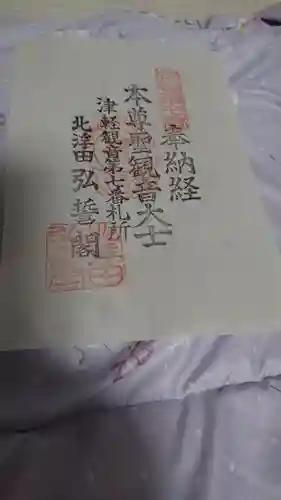 奉納経
本尊聖観音大士
津軽観音第七番札所
北浮田弘誓閣